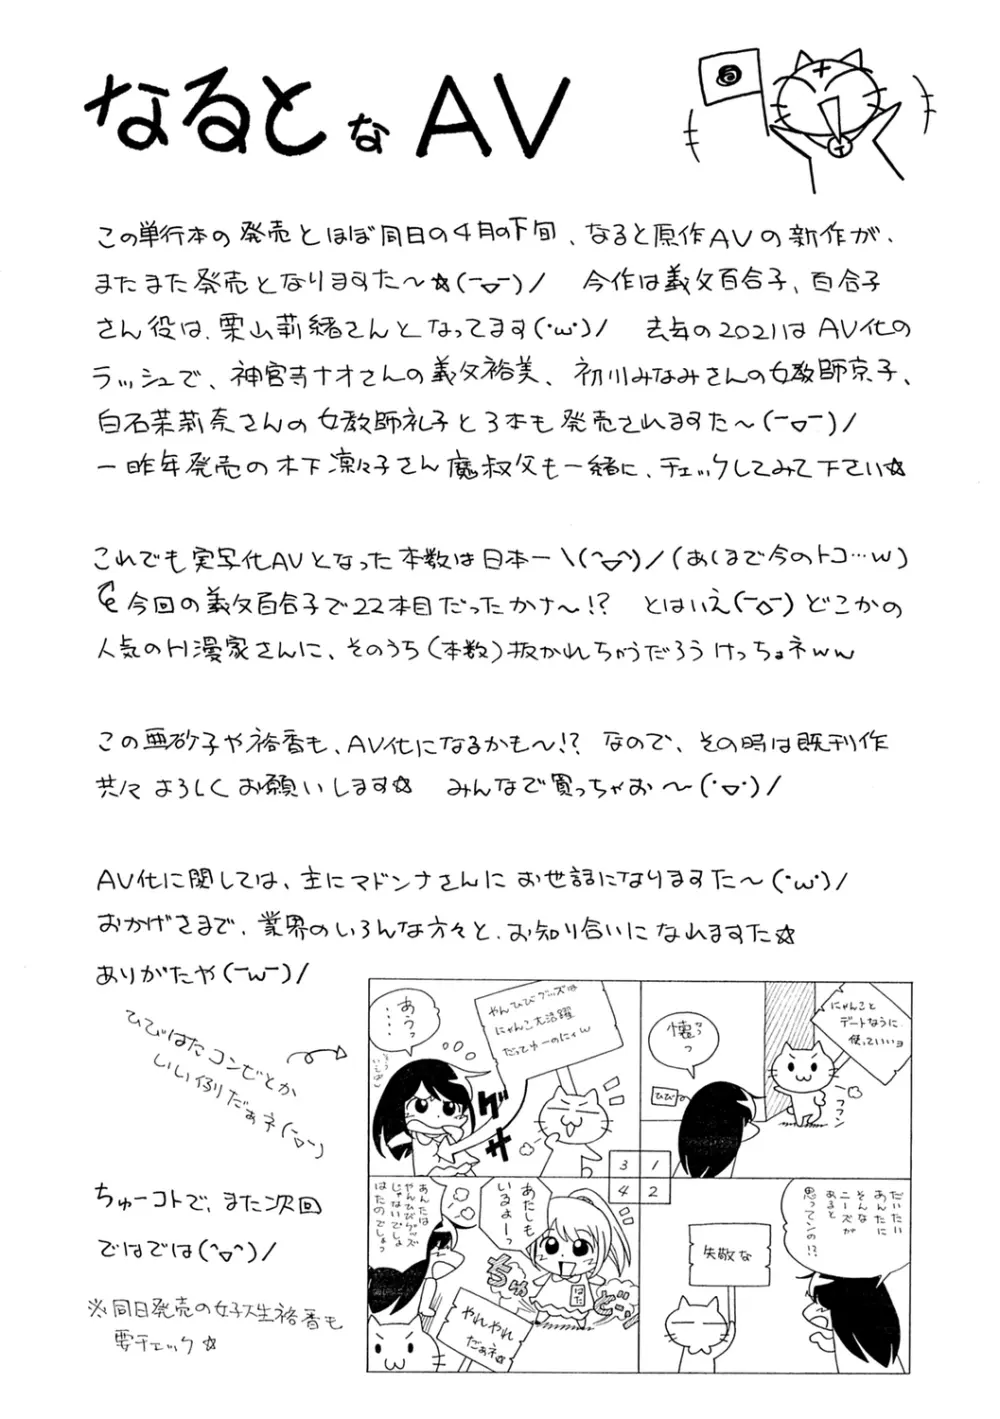 なるとな AV
この単行本の発売とほぼ同日の4月の下旬、なると原作AVの新作が、
またまた発売となりますた〜☆(ｰ▽ｰ)/ 今作は義父百合子、百合子
さん役は、栗山莉緒さんとなってます(･ω･)/ 去年の2021は AV化の
ラッシュで、神宮寺ナオさんの義父裕美、初川みなみさんの女教師京子、
白石茉莉奈さんの女教師礼子と3本も発売されますた〜(ｰ▽ｰ)/
一昨年発売の木下凛々子さん魔叔父も一緒に、チェックしてみて下さい☆
これでも実写化AVとなった本数は日本一\(^▽^)/(あくまで今のトコ…w)
今回の義父百合子で22本目だったかナ〜!? とはいえ(ｰ▽ｰ)どこかの
人気のH漫家さんに、そのうち(本数)抜かれちゃうだろうけっちょネww
この亜砂子や裕香も、AV化になるかも〜!? なので、その時は既刊作
共々よろしくお願いします☆ みんなで買っちゃお〜(･▽･)/
AV化に関しては、主にマドンナさんにお世話になりますた〜(･ω･)/
おかげさまで、業界のいろんな方々と、お知り合いになれますた☆
ありがたや(ｰωｰ)/
ひびはたコンビとか
いい例りだぁネ(ｰ▽ｰ)
ちゅーコトで、また次回
ではでは(^▽^)/
※同日発売の女子大生裕香も
要チェック☆
にゃんこと
デートなうに
使っていいョ
懐っ
ひび
フフン
だいたい
あんたに
そんな
ニーズが
あると
思ってンの!?
失敬な
やんひびグッズは
にゃんこ大活躍
だってゆーのにィw
あうっ
‥‥
グサ
3 1
4 2
あたしも
いるよォーっ
あんたは
やんひびグッズ
じゃないでしょ
はたのでしょっ
はた
やれやれ
だぁネ☆